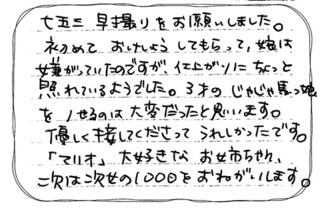 七五三 早撮りをお願いしました。
初めて おけしょう してもらって、娘は
嫌がっていたのですが、仕上がりに ちょっと
照れているようでした。3才の じゃじゃ馬っ娘
を のせるのは大変だったと思います。
優しく接してくださって うれしかったです。
「てりオ」大好きな お姉ちゃん、
次は次女の100日をおねがいします。